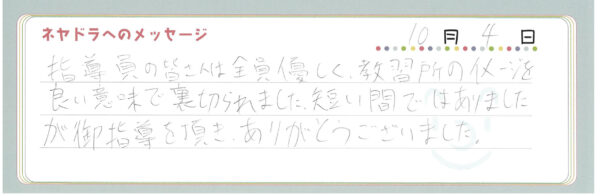 ネヤドラへのメッセージ
10月4日
指導員の皆さんは全員優しく、教習所のイメージを
良い意味で裏切られました。短い間ではありました
が御指導を頂き、ありがとうございました。